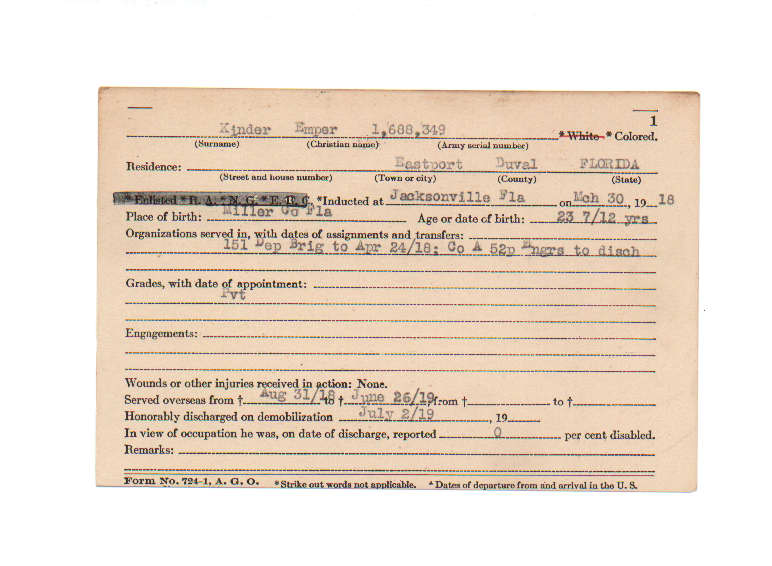 1
Kinder Emper 1,688,349 * White * Colored.
(Surname) (Christian name) (Army serial number)
Residence: Eastport Duval FLORIDA
(Street and house number) (Town or city) (County) (State)
* Enlisted * R. A. * N. G. * E. R. C. *Inducted at Jacksonville Fla on Mch 30, 1918
Place of birth: Miller Co Fla Age or date of birth: 23 7/12 yrs
Organizations served in, with dates of assignments and transfers:
151 Dep Brig to Apr 24/18; Co A 52p Engrs to disch
Grades, with date of appointment:
Pvt
Engagements:
Wounds or other injuries received in action: None.
Served overseas from † Aug 31/18 to † June 26/19, from † to †
Honorably discharged on demobilization July 2/19, 19
In view of occupation he was, on date of discharge, reported 0 per cent disabled.
Remarks:
Form No. 724-1, A. G. O. *Strike out words not applicable. † Dates of departure from and arrival in the U. S.